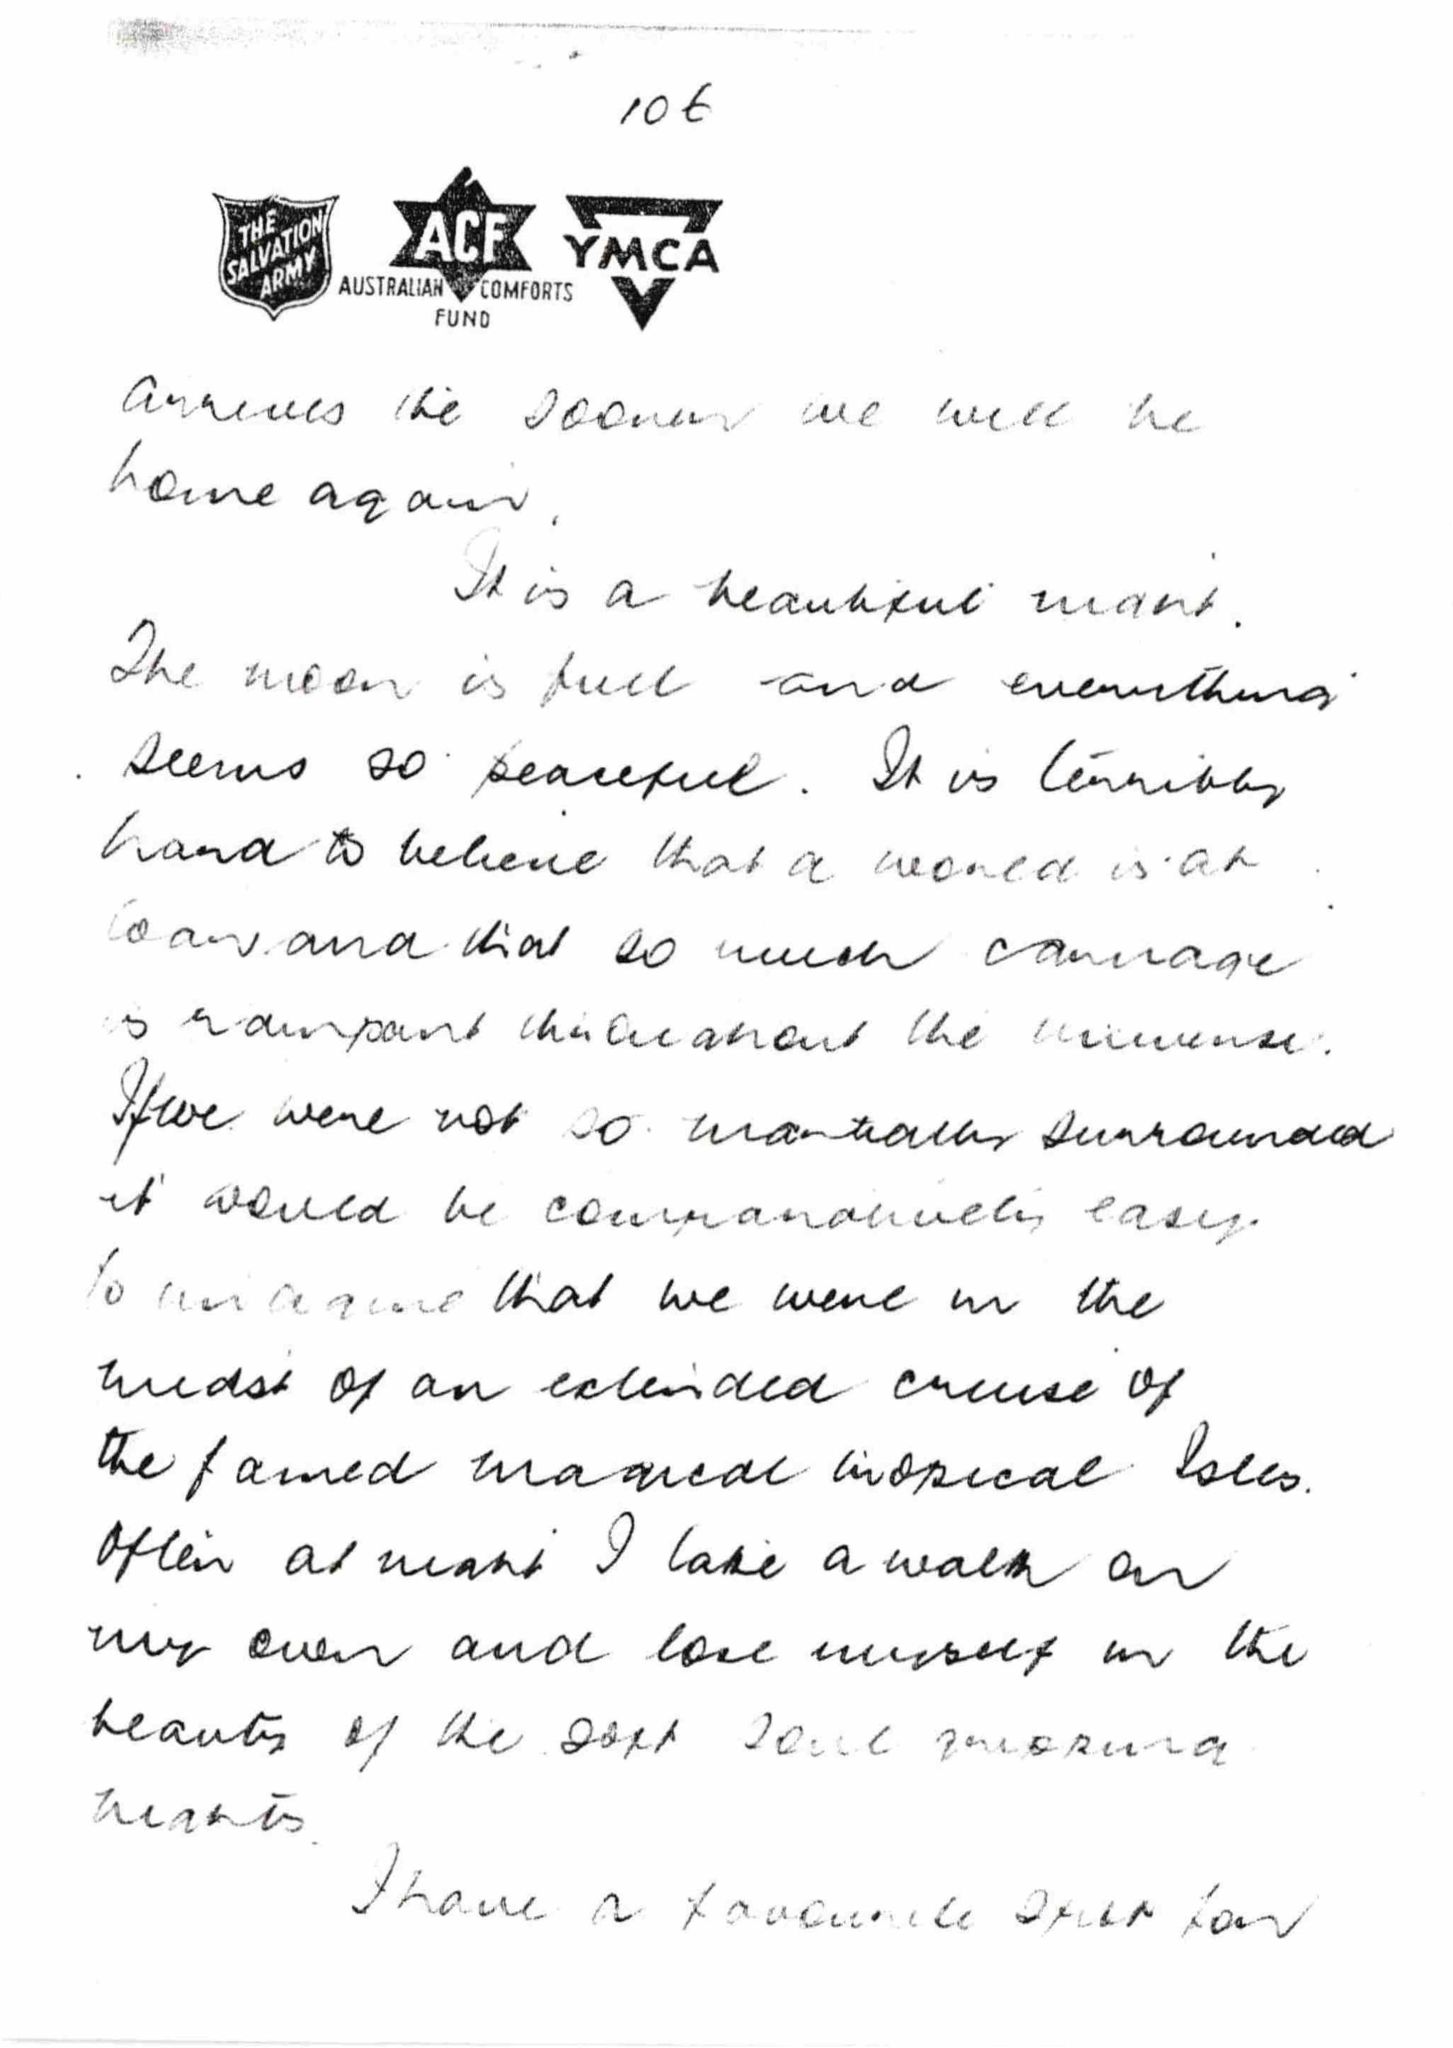 106
THE SALVATION ARMY
ACF
AUSTRALIAN COMFORTS FUND
YMCA
arrives the sooner we will be
home again.
It is a beautiful night.
The moon is full and everything
seems so peaceful. It is terribly
hard to believe that a world is at
war and that so much carnage
is rampant throughout the universe.
If we were not so martially surrounded
it would be comparatively easy
to imagine that we were in the
midst of an extended cruise of
the famed magical tropical Isles.
Often at night I take a walk on
my own and lose myself in the
beauty of the soft soul
nights.
I have a favourite spot for